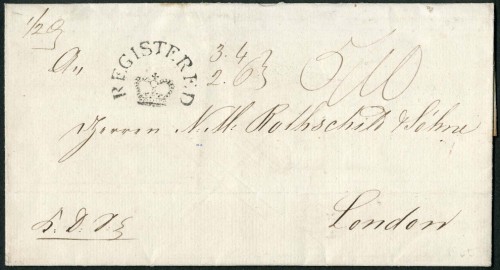 1/2
An
REGISTERED
3. 4
2. 6
Herren N. M. Rothschild & Söhne
London